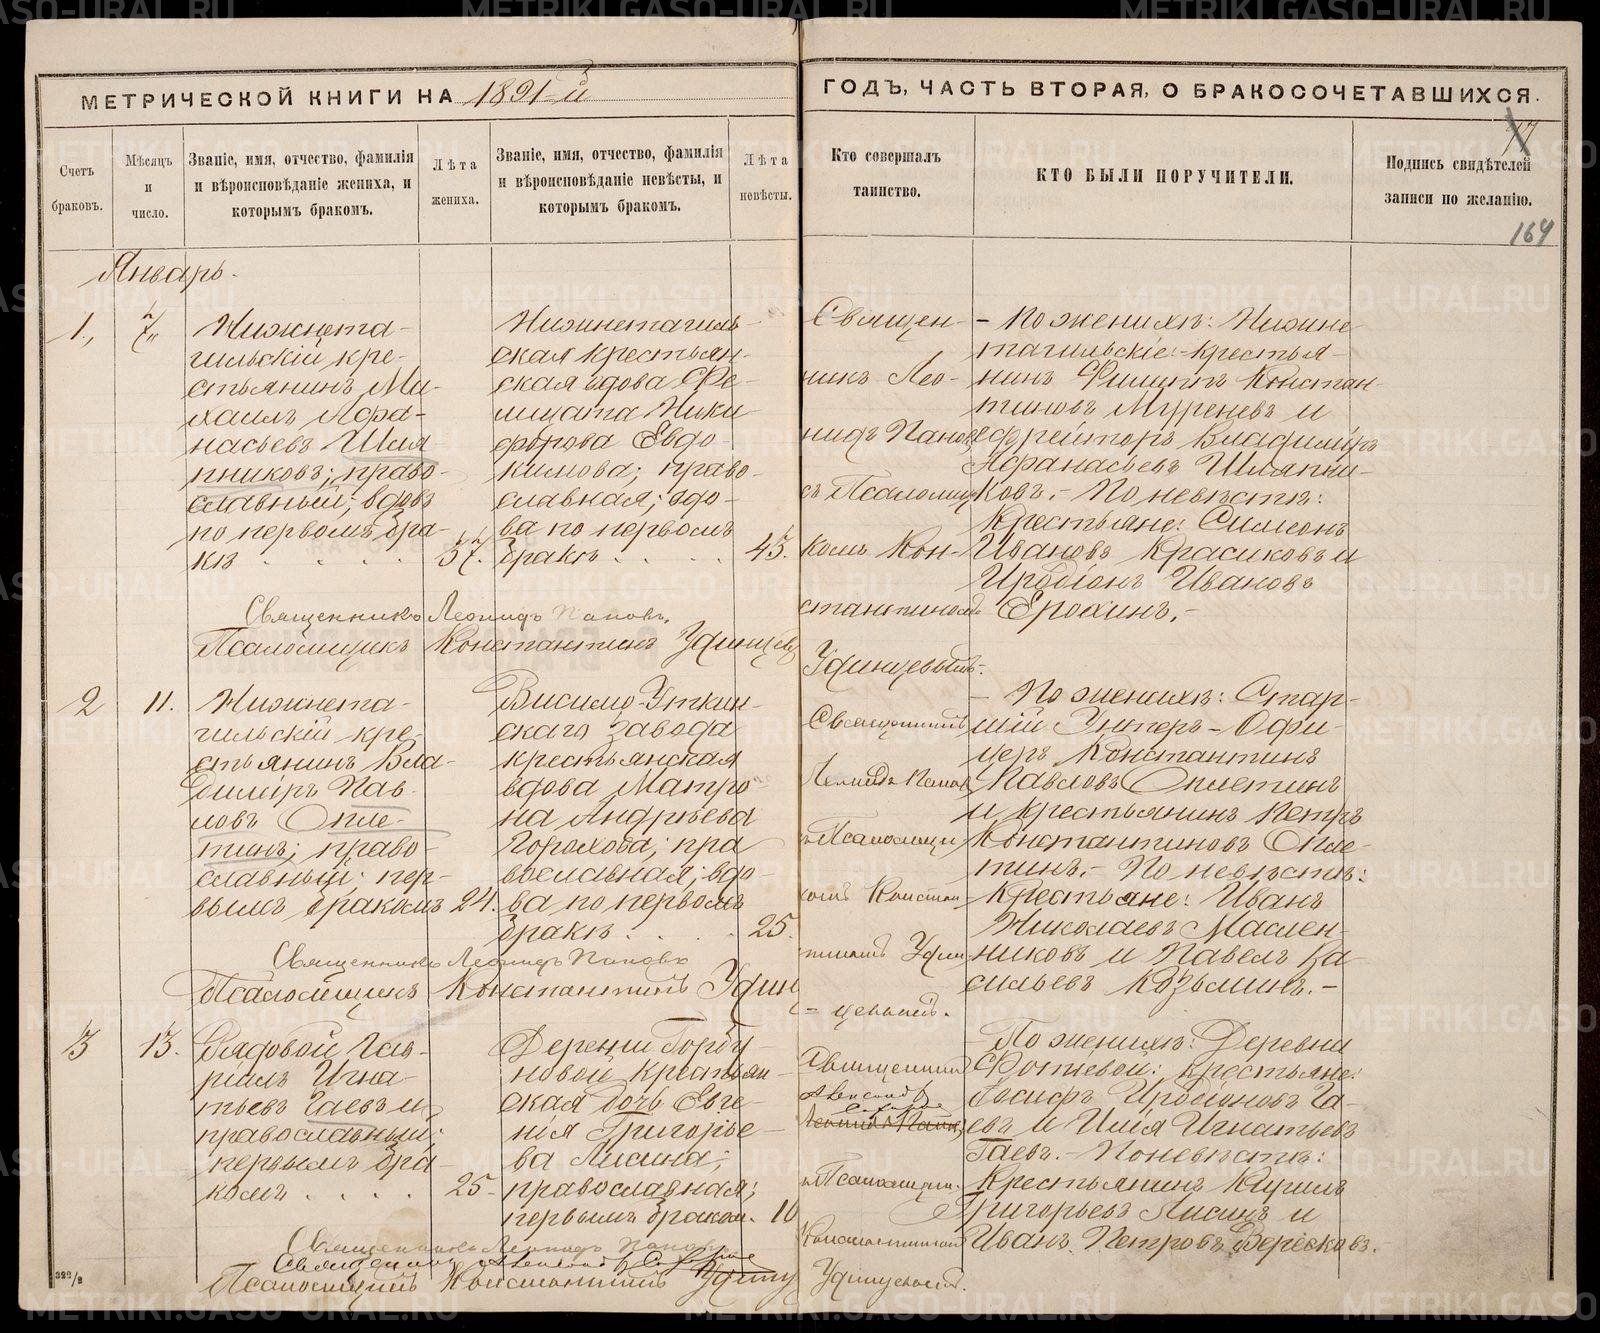 МЕТРИЧЕСКОЙ КНИГИ НА 1891-й
ГОДЪ, ЧАСТЬ ВТОРАЯ, О БРАКОСОЧЕТАВШИХСЯ.
Счетъ браковъ.
Мѣсяцъ и число.
Званіе, имя, отчество, фамилія
и вѣроисповѣданіе жениха, и
которымъ бракомъ.
Лѣта
жениха.
Званіе, имя, отчество, фамилія
и вѣроисповѣданіе невѣсты, и
которымъ бракомъ.
Лѣта
невѣсты.
Кто совершалъ
таинство.
КТО БЫЛИ ПОРУЧИТЕЛИ.
Подпись свидѣтелей
записи по желанію.
164
Январь.
1,
7"
Нижнета-
гильскій кре-
стьянинъ Ми-
хаилъ Афа-
насьевъ Шля-
пниковъ; право-
славный; вдовъ
по первомъ бра-
кѣ . . . .
57.
Нижнетагиль-
ская крестьян-
ская вдова Фе-
лицата Ники
форова Евдо-
кимова; право-
славная; вдо-
ва по первомъ
бракѣ . . . .
45.
Священ-
никъ Лео-
нидъ Паповъ
съ Псаломщи
комъ Кон-
стантиномъ
Удинцевымъ.
- По женихѣ: Нижне-
тагильскіе: крестья-
нинъ Филиппъ Констан-
тиновъ Муреневъ и
ефрейторъ Владиміръ
Афанасьевъ Шляпни-
ковъ. - По невѣстѣ:
Крестьяне: Симеонъ
Ивановъ Красиковъ и
Иродіонъ Ивановъ
Ерохинъ. -
Священникъ Леонидъ Паповъ.
Псаломщикъ Константинъ Удинцевъ
2
11.
Нижнета-
гильскій кре-
стьянинъ Вла-
диміръ Пав-
ловъ Опле-
тинъ; право-
славный; пер-
вымъ бракомъ
24.
Висимо-Уткин-
скаго завода
крестьянская
вдова Матро-
на Андреева
Горохова; пра
вославная; вдо-
ва по первомъ
бракѣ . . . .
25.
Священникъ
Леонидъ Паповъ
съ Псаломщи
комъ Констан
тиномъ Удин
= цевымъ.
- По женихѣ: Стар-
шій Унтеръ-Офи-
церъ Константинъ
Павловъ Оплетинъ
и крестьянинъ Петръ
Константиновъ Опле-
тинъ. - По невѣстѣ:
Крестьяне: Иванъ
Николаевъ Маслен-
никовъ и Павелъ Ва-
сильевъ Козьминъ. -
Священникъ Леонидъ Паповъ
Псаломщикъ Константинъ Удинц
3
13.
Рядовой Гав-
ріилъ Игна-
тьевъ Гаевъ;
православный;
первымъ бра-
комъ . . . .
25.
Деревни Горбу-
новой крестьян-
ская дочь Евге-
нія Григорье-
ва Лисина;
православная;
первымъ бракомъ.
Священникъ
Леонидъ Паповъ
съ Псаломщи
Константиномъ
Удинцевымъ.
По женихѣ: Деревни
Фотѣевой: Крестьяне:
Іосифъ Иродіоновъ Га-
евъ и Илія Игнатьевъ
Гаевъ. - По невѣстѣ:
Крестьянинъ Кирилъ
Григорьевъ Лисинъ и
Иванъ Петровъ
Священникъ Леонидъ Паповъ
Священникъ
Псаломщикъ Константинъ Удинц
METRIKI.GASO-URAL.RU